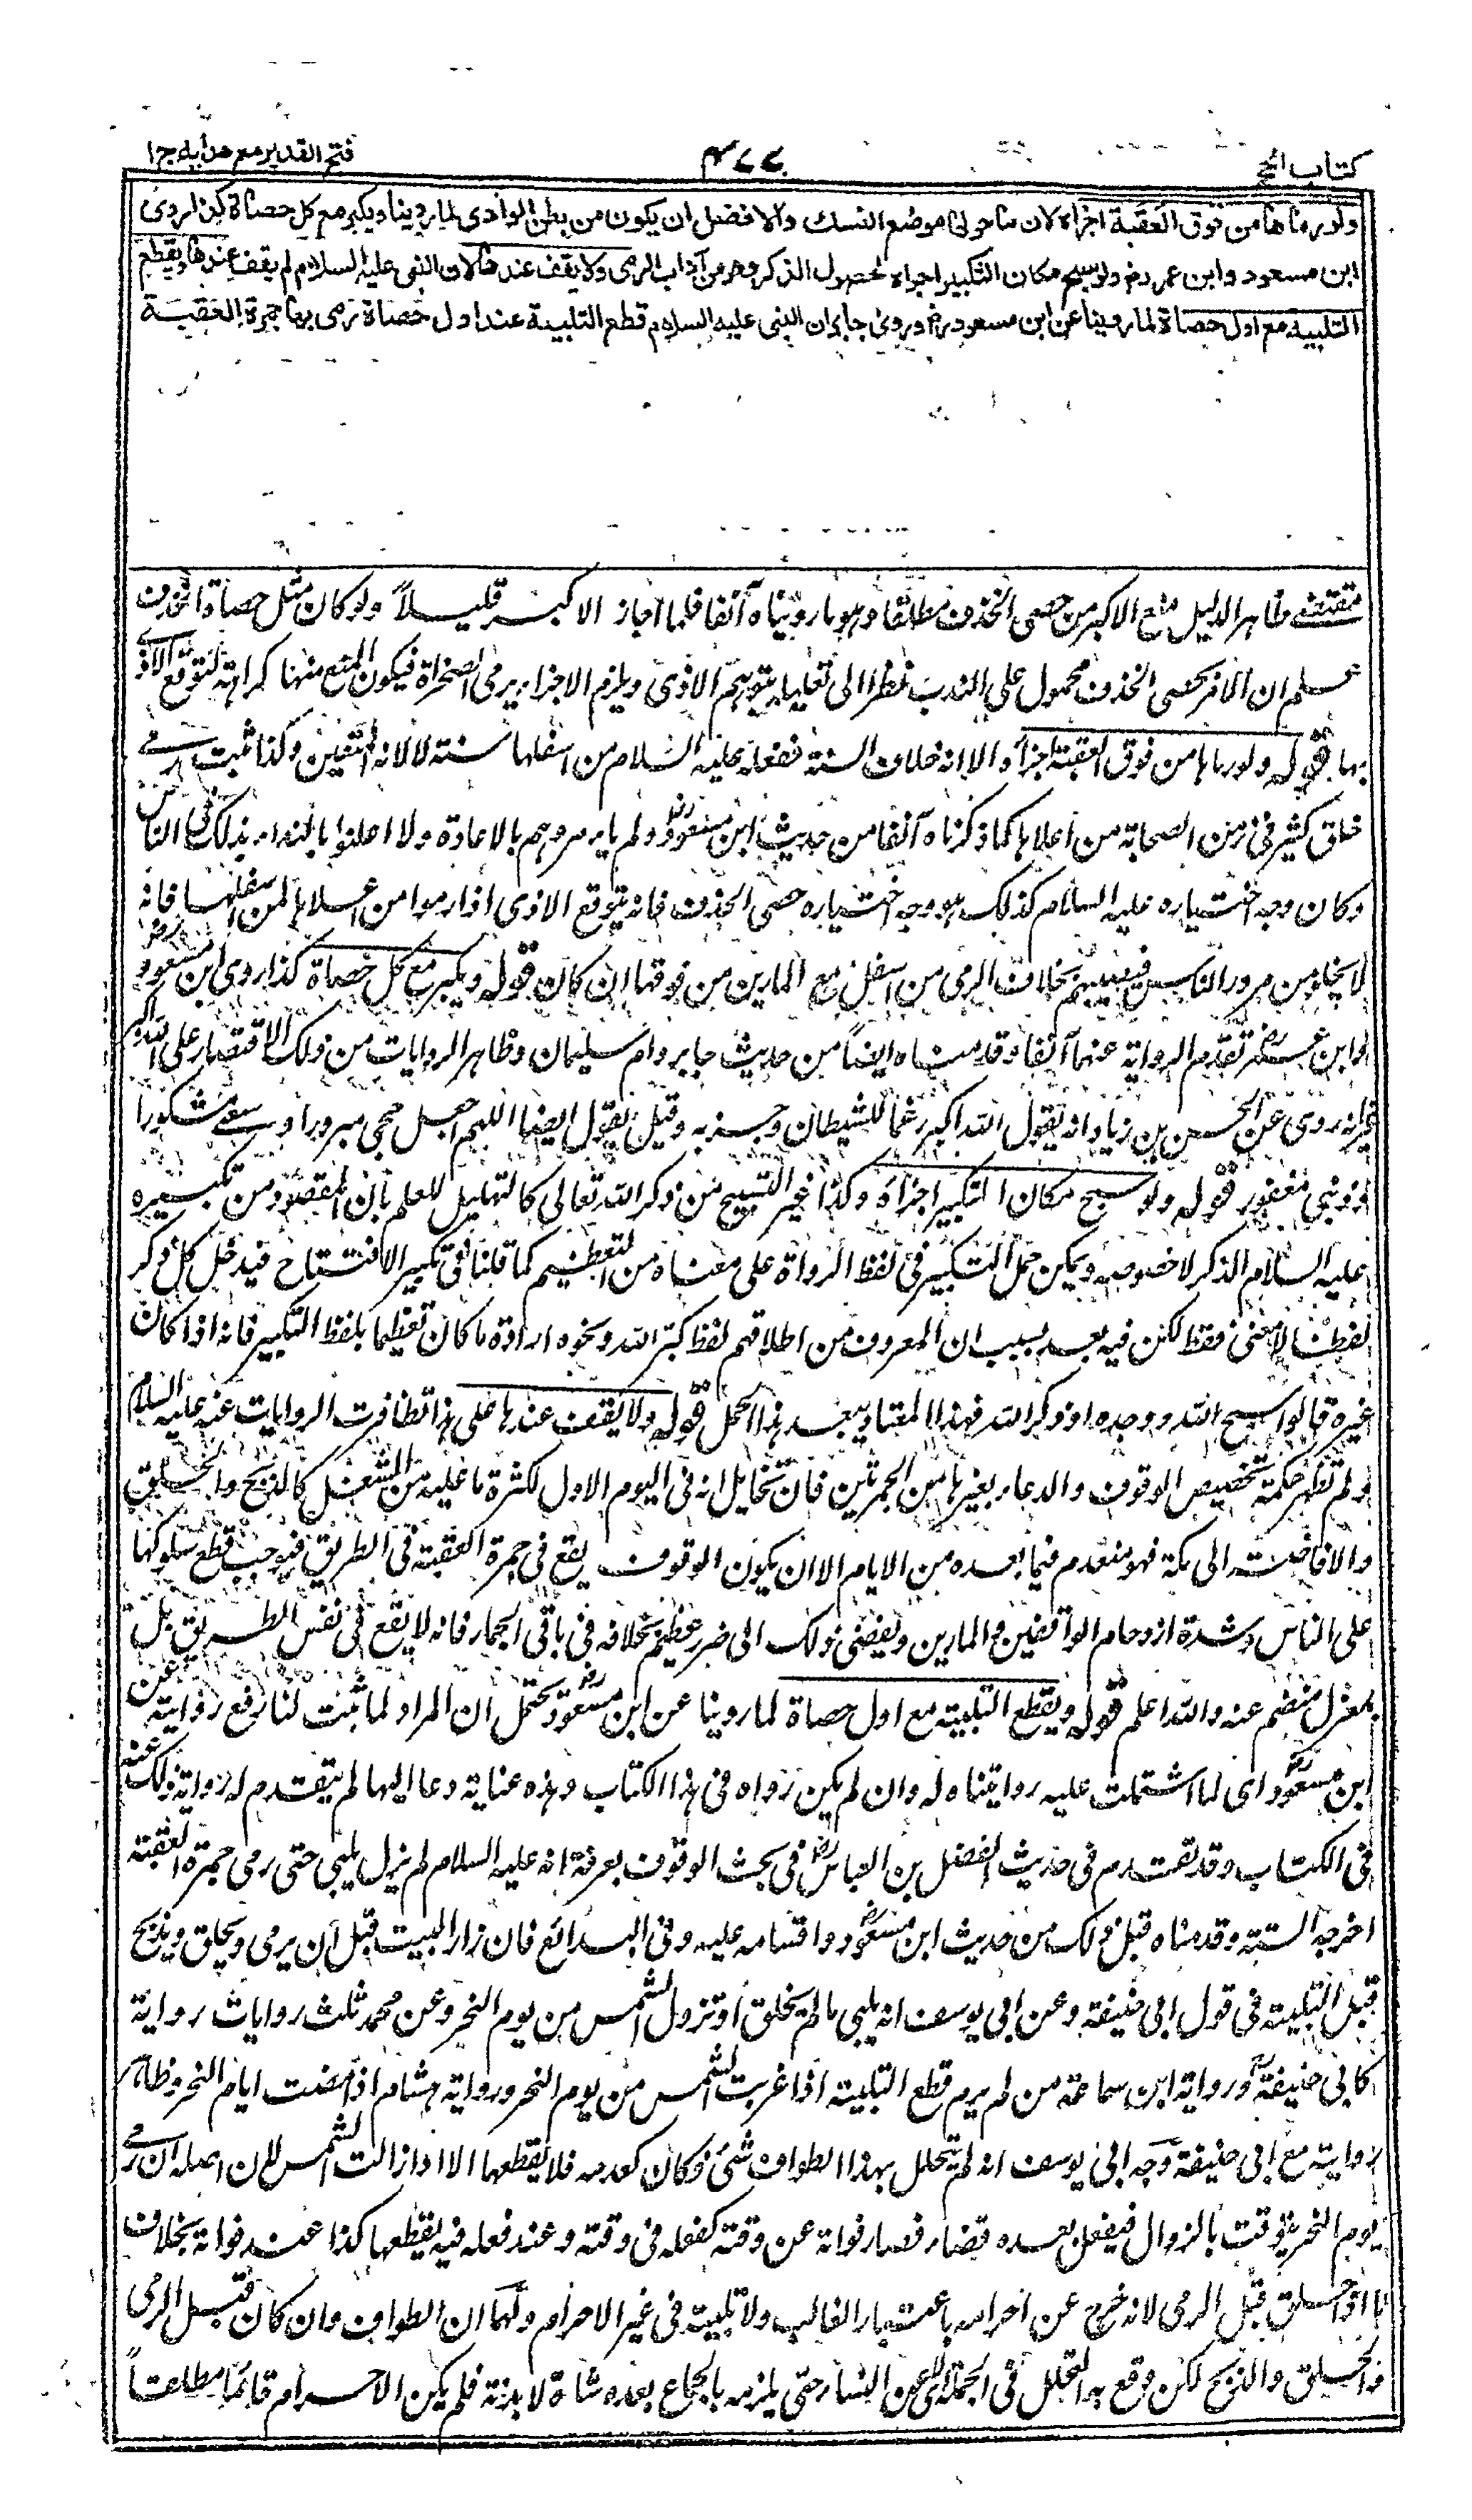 كتاب الحج
٤٧٧
فتح القدير مع هدايه ج١
ولو رماها من فوق العقبة اجزاه لان ما حولها موضع النسك والافضل ان يكون من بطن الوادى لما روينا ويكبر مع كل حصاة كذا روى
ابن مسعود وابن عمر رض ولو سبح مكان التكبير اجزاه لحصول الذكر وهو من آداب الرمى ولا يقف عندها لان النبى عليه السلام لم يقف عندها ويقطع
التلبية مع اول حصاة لما روينا عن ابن مسعود رض وروى جابر ان النبى عليه السلام قطع التلبية عند اول حصاة رمى بها جمرة العقبة
مقتضے ظاهر الدليل منع الاكبر من حصى الخذف مطلقا وهو ما رويناه آنفا فلما اجاز الاكبر قليلاً ولو كان مثل حصاة الخذف
علم ان الامر بحصى الخذف محمول على الندب نظرا الى تعليله بتوهم الاذى ويلزم الاجزاء برمى الصخرة فيكون المنع منها كراهة لتوقع الاذى
بها قوله ولو رماها من فوق العقبة اجزأه الا انه خلاف السنة ففعله عليه السلام من اسفلها سنة لا لانه المتعين وكذا ثبت رمے
خلق كثير فى زمن الصحابة من اعلاها كما ذكرناه آنفا من حديث ابن مسعود رض ولم يامروهم بالاعادة ولا اعلنوا بالنداء بذلك فى الناس
وكان وجه اختياره عليه السلام كذلك هو وجه اختياره حصى الخذف فانه يتوقع الاذى اذا رموا من اعلاها لمن اسفلها فانه
لا يخلو من مرور الناس فيصيبهم بخلاف الرمى من اسفل مع المارين من فوقها ان كان قوله ويكبر مع كل حصاة كذا روى ابن مسعود رض
وابن عمر رض تقدم الرواية عنهما آنفا وقدمناه ايضاً من حديث جابر وام سليمان وظاهر الروايات من ذلك الاقتصار على الله اكبر
غير انه روى عن الحسن بن زياد انه يقول الله اكبر رغما للشيطان وحزبه وقيل يقول ايضا اللهم اجعل حجى مبرورا وسعيے مشكورا
وذنبى مغفورا قوله ولو سبح مكان التكبير اجزأه وكذا غير التسبيح من ذكر الله تعالى كالتهليل للعلم بان المقصود من تكبيره
عليه السلام الذكر لا خصوصه ويمكن حمل التكبير فى لفظ الرواة على معناه من التعظيم كما قلنا فى تكبير الافتتاح فيدخل كل ذكر
لفظا لا معنى فقط لكن فيه بعد بسبب ان المعروف من اطلاقهم لفظ كبر الله ونحوه ارادة ما كان تعظيما بلفظ التكبير فانه اذا كان
غيره قالوا سبح الله ووحده وذكر الله فهذا المعتاد يبعد هذا الحمل قوله ولا يقف عندها على هذا تظافرت الروايات عنه عليه السلام
ولم تظهر حكمة تخصيص الوقوف والدعاء بغيرها من الجمرتين فان تخايل انه فى اليوم الاول لكثرة ما عليه من الشغل كالذبح والحلق
والافاضة الى مكة فهو منعدم فيما بعده من الايام الا ان يكون الوقوف يقع فى جمرة العقبة فى الطريق فيوجب قطع سلوكها
على الناس وشدة ازدحام الواقفين والمارين ويفضى ذلك الى ضرر عظيم بخلافه فى باقى الجمار فانه لا يقع فى نفس الطريق بل
بمعزل منضم عنه والله اعلم قوله ويقطع التلبية مع اول حصاة لما روينا عن ابن مسعود رض يحتمل ان المراد لما ثبت لنا رفع رواية عن
ابن مسعود رض اى لما اشتملت عليه روايتناه له وان لم يكن رواه فى هذا الكتاب وهذه عناية دعا اليها لم يتقدم له رواية ذلك عنه
فى الكتاب وقد تقدم فى حديث الفضل بن العباس رض فى بحث الوقوف بعرفة انه عليه السلام لم يزل يلبى حتى رمى جمرة العقبة
اخرجه الستة وقدمناه قبل ذلك من حديث ابن مسعود رض واقسامه عليه وفى البدائع فان زار البيت قبل ان يرمى ويحلق ويذبح
قطع التلبية فى قول ابى حنيفة وعن ابى يوسف انه يلبى ما لم يحلق او تزول الشمس من يوم النحر وعن محمد ثلث روايات رواية
كابى حنيفة ورواية ابن سماعة من لم يرم قطع التلبية اذا غربت الشمس من يوم النحر ورواية هشام اذا مضت ايام النحر وظاهر
روايته مع ابى حنيفة وجه ابى يوسف انه لم يتحلل بهذا الطواف شئ فكان كعدمه فلا يقطعها الا اذا زالت الشمس لان اصله ان رمے
يوم النحر يتوقت بالزوال فيفعل بعده قضاء فصار فواته عن وقته كفعله فى وقته وعند فعله فيه يقطعها كذا عند فواته بخلاف
ما اذا حلق قبل الرمى لانه خرج عن احرامه باعتبار الغالب ولا تلبية فى غير الاحرام ولهما ان الطواف وان كان قبل الرمى
والحلق والذبح لكن وقع به التحلل فى الجملة عن النساء حتى يلزمه بالجماع بعده شاة لا بدنة فلم يكن الاحرام قائماً مطلقاً